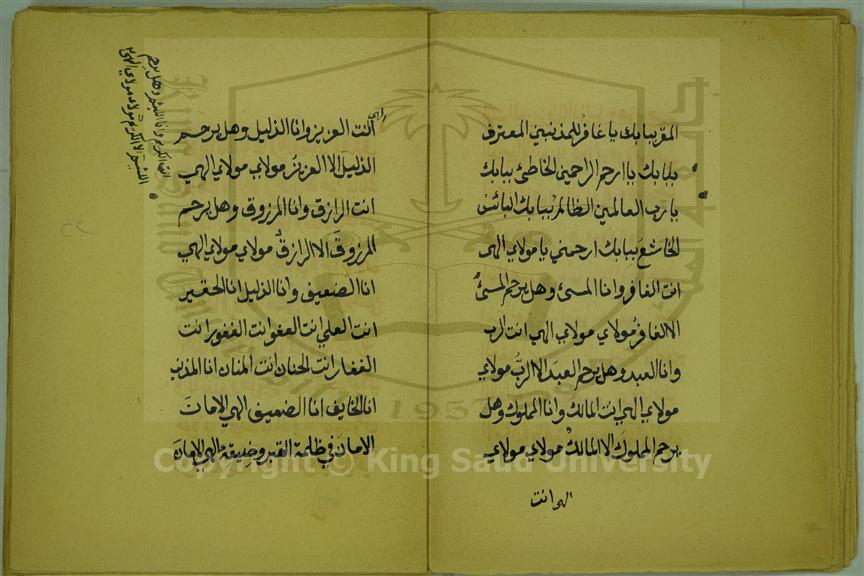 المقر ببابك يا غافر للمذنبين المعترف
ببابك يا ارحم الراحمين الخاطئ ببابك
يا رب العالمين الظالم ببابك البائس
الخاشع ببابك ارحمني يا مولاي الهي
انت الغافر وانا المسئ وهل يرحم المسئ
الا الغافر مولاي مولاي الهي انت الرب
وانا العبد وهل يرحم العبد الا الرب مولاي
مولاي الهي انت المالك وانا المملوك وهل
يرحم المملوك الا المالك مولاي مولاي
الهي انت
الهي
انت العزيز وانا الذليل وهل يرحم
الذليل الا العزيز مولاي مولاي الهي
انت الرازق وانا المرزوق وهل يرحم
المرزوق الا الرازق مولاي مولاي الهي
انا الضعيف وانا الذليل انا الحقير
انت العلي انت العفو انت الغفور انت
الغفار انت الحنان انت المنان انا المذنب
انا الخايف انا الضعيف الهي الامان
الامان في ظلمة القبر وضيقه الهي الامان
انت الكريم وانا اللئيم وهل يرحم
اللئيم الا الكريم مولاي مولاي الهي
٢٢
1957
Copyright © King Saud University